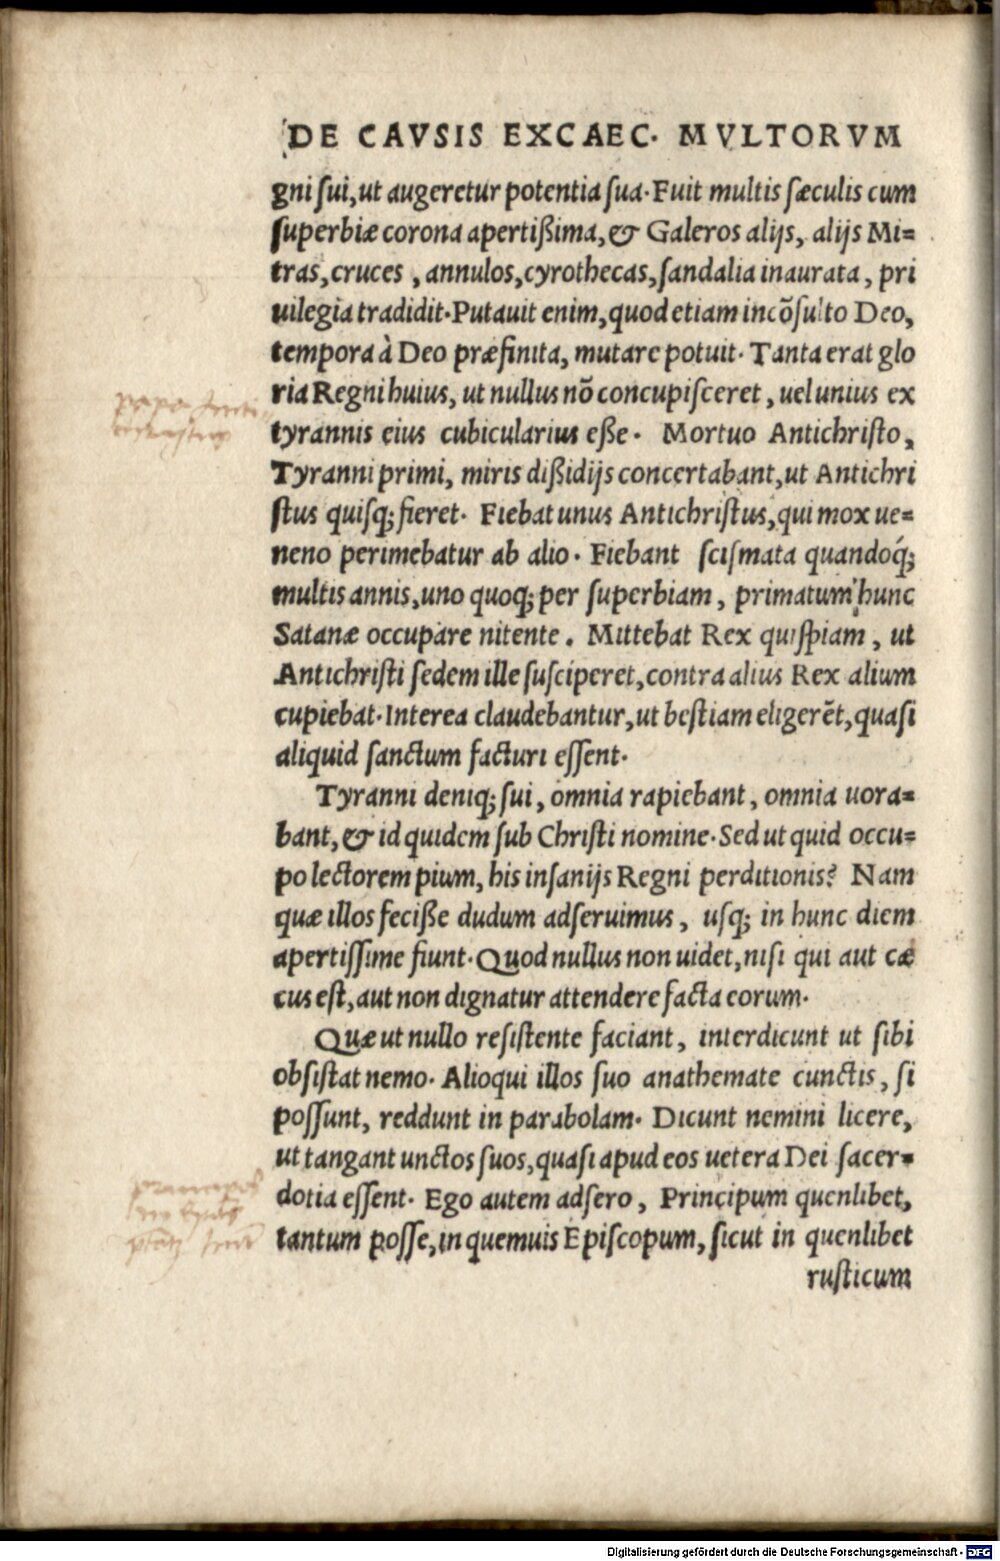 DE CAVSIS EXCAEC. MVLTORVM
gni ſui, ut augeretur potentia ſua. Fuit multis ſæculis cum
ſuperbiæ corona apertißima, & Galeros alijs, alijs Mi=
tras, cruces, annulos, cyrothecas, ſandalia inaurata, pri
uilegia tradidit. Putauit enim, quod etiam incõſulto Deo,
tempora à Deo præfinita, mutare potuit. Tanta erat glo
ria Regni huius, ut nullus nõ concupiſceret, uel unius ex
tyrannis eius cubicularius eße. Mortuo Antichriſto,
Tyranni primi, miris dißidijs concertabant, ut Antichri
ſtus quiſq; fieret. Fiebat unus Antichriſtus, qui mox ue=
neno perimebatur ab alio. Fiebant ſciſmata quandoq́;
multis annis, uno quoq; per ſuperbiam, primatum hunc
Satanæ occupare nitente. Mittebat Rex quiſpiam, ut
Antichriſti ſedem ille ſuſciperet, contra alius Rex alium
cupiebat. Interea claudebantur, ut beſtiam eligerẽt, quaſi
aliquid ſanctum facturi eſſent.
Tyranni deniq; ſui, omnia rapiebant, omnia uora=
bant, & id quidem ſub Chriſti nomine. Sed ut quid occu=
po lectorem pium, his inſanijs Regni perditionis? Nam
quæ illos feciße dudum adſeruimus, uſq; in hunc diem
apertiſſime fiunt. Quod nullus non uidet, niſi qui aut cæ
cus eſt, aut non dignatur attendere facta eorum.
Quæ ut nullo reſiſtente faciant, interdicunt ut ſibi
obſiſtat nemo. Alioqui illos ſuo anathemate cunctis, ſi
poſſunt, reddunt in parabolam. Dicunt nemini licere,
ut tangant unctos ſuos, quaſi apud eos uetera Dei ſacer=
dotia eſſent. Ego autem adſero, Principum quenlibet,
tantum poſſe, in quemuis Epiſcopum, ſicut in quenlibet
ruſticum
Digitalisierung gefördert durch die Deutsche Forschungsgemeinschaft - DFG